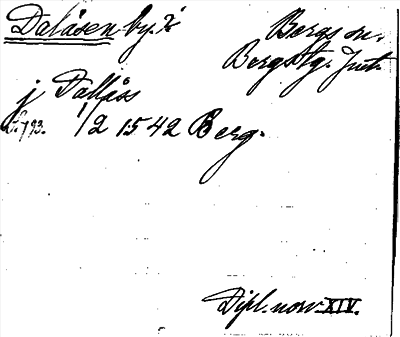 Dalåsen by.
Bergs sn.
Bergs tg. Jmtl.
j Dallååss
1/2 1542 Berg.
Dipl. norv. XIV.